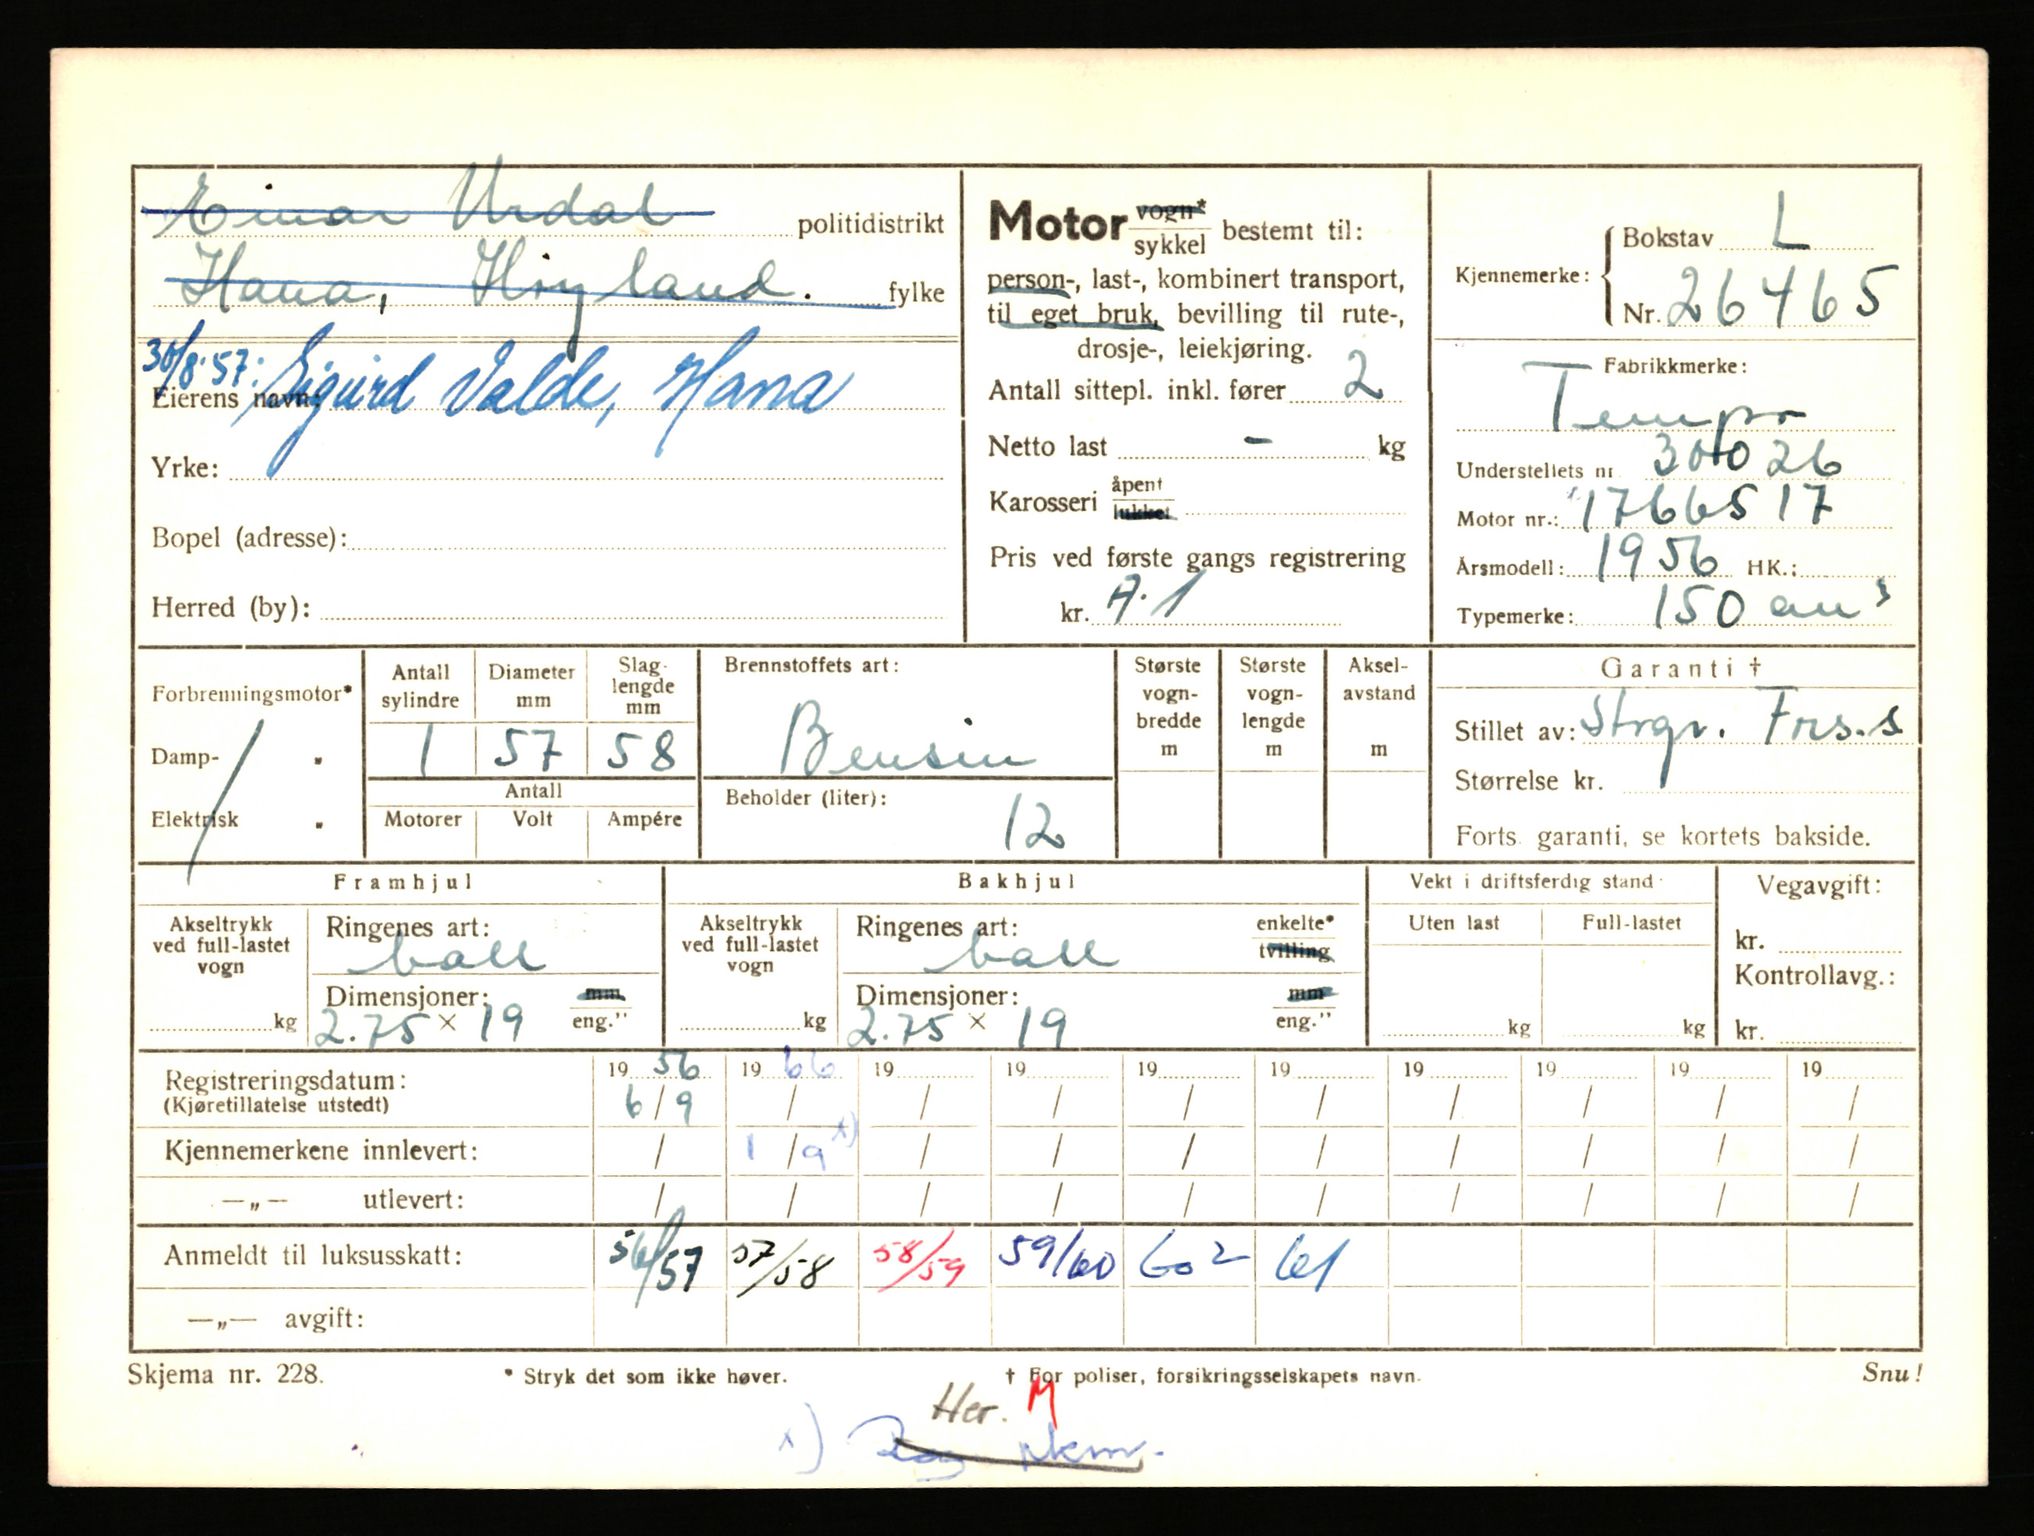 Einar Urdal politidistrikt
Hana, Høyland. fylke
30/8-57: Sigurd Valde, Hana
Eierens navn:
Yrke:
Bopel (adresse):
Herred (by):
Motor vogn* sykkel bestemt til:
person-, last-, kombinert transport,
til eget bruk, bevilling til rute-,
drosje-, leiekjøring.
Antall sittepl. inkl. fører 2
Netto last - kg
Karosseri åpent lukket
Pris ved første gangs registrering
kr. A.1
Kjennemerke: Bokstav L
Nr. 26465
Fabrikkmerke:
Tempo
Understellets nr. 304026
Motor nr.: 1766517
Årsmodell: 1956 HK.:
Typemerke: 150 cm³
Forbrenningsmotor*
Damp- "
Elektrisk "
Antall sylindre Diameter mm Slaglengde mm
1 57 58
Antall
Motorer Volt Ampére
Brennstoffets art:
Bensin
Beholder (liter):
12
Største vognbredde m
Største vognlengde m
Akselavstand m
Garanti †
Stillet av: Strgr. Frs.s
Størrelse kr.
Forts. garanti, se kortets bakside.
Framhjul
Akseltrykk ved full-lastet vogn kg
Ringenes art:
ball
Dimensjoner: mm eng."
2.75 × 19
Bakhjul
Akseltrykk ved full-lastet vogn kg
Ringenes art: enkelte* tvilling
ball
Dimensjoner: mm eng."
2.75 × 19
Vekt i driftsferdig stand
Uten last Full-lastet
kg kg
Vegavgift:
kr.
Kontrollavg.:
kr.
19 56 19 66 19 19 19 19 19 19 19 19
Registreringsdatum: 6/9 / / / / / / / / /
(Kjøretillatelse utstedt)
Kjennemerkene innlevert: / 1/9 x) / / / / / / / /
—„— utlevert: / / / / / / / / / /
Anmeldt til luksusskatt: 56/57 57/58 58/59 59/60 60 2 61
—„— avgift:
Skjema nr. 228. * Stryk det som ikke høver. † For poliser, forsikringsselskapets navn. Snu!
Her. M
x)